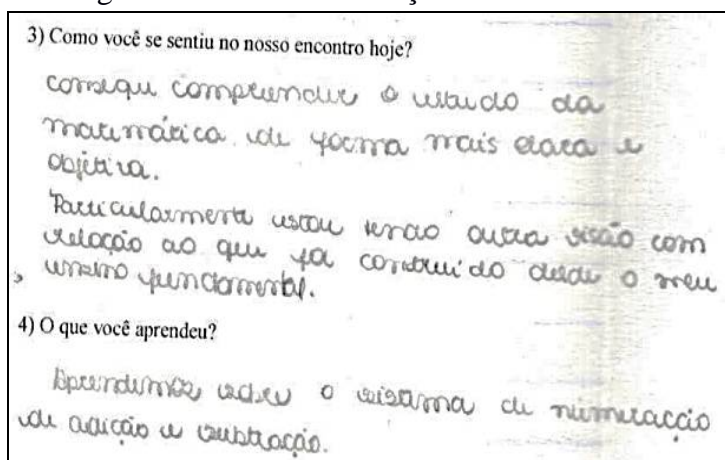 3) Como você se sentiu no nosso encontro hoje?
consegui compreender o estudo da
matemática de forma mais clara e
objetiva.
Particularmente estou tendo outra visão com
relação ao que foi construído desde o meu
ensino fundamental.
4) O que você aprendeu?
Aprendemos sobre o sistema de numeração
de adição e subtração.